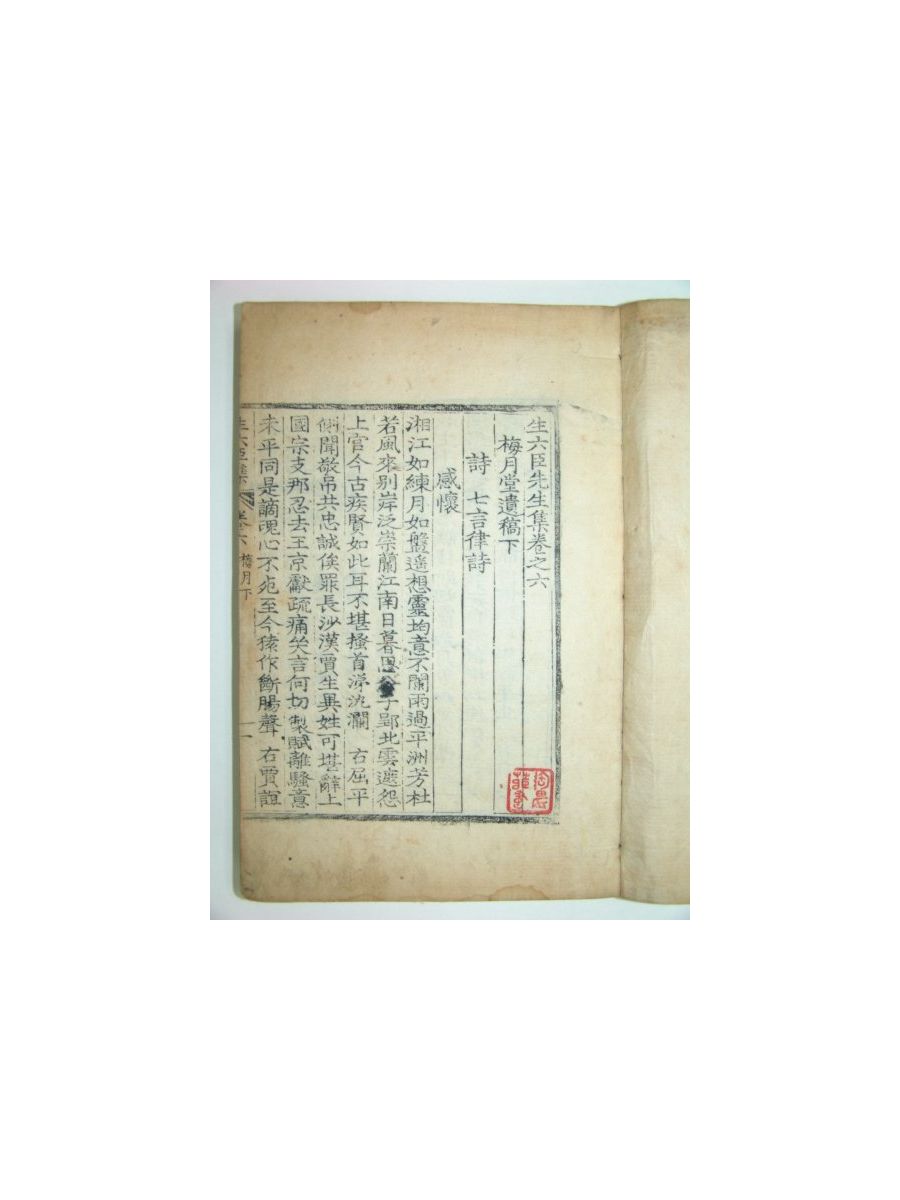 生六臣先生集卷之六
梅月堂遺稿下
詩 七言律詩
感懷
湘江如練月如盤遥想靈均意不闌雨過平洲芳杜
若風來別岸泛崇蘭江南日暮思子郢北雲遮怨
上官今古疾賢如此耳不堪搔首涕汍瀾 右屈平
側聞敬吊共忠誠俟罪長沙漢賈生異姓可堪辭上
國宗支那忍去王京獻疏痛哭言何切製賦離騷意
未平同是謫魂心不死至今猿作斷腸聲 右賈誼
生六臣集 卷六 梅月下 一